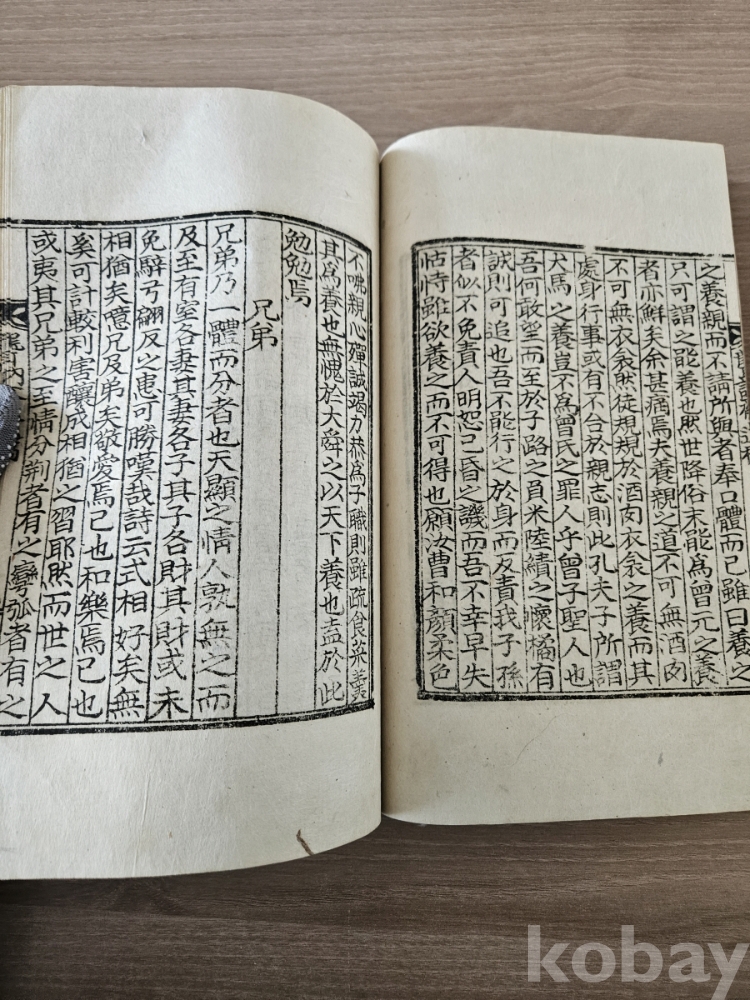 之養親而不請所與者奉口體而已雖曰養之
只可謂之能養也然世降俗末能爲曾元之養
者亦鮮矣余甚痛焉夫養親之道不可無酒肉
不可無衣衾然徒規規於酒肉衣衾之養而其
處身行事或有不合於親志則此孔夫子所謂
犬馬之養豈不爲曾氏之罪人乎曾子聖人也
吾何敢望而至於子路之負米陸績之懷橘有
誠則可追也吾不能行之於身而反責我子孫
者似不免責人明恕己昏之譏而吾不幸早失
怙恃雖欲養之而不可得也願汝曹和顔柔色
不咈親心殫誠竭力恭爲子職則雖疏食菜羹
其爲養也無愧於大舜之以天下養也盍於此
勉勉焉
兄弟
兄弟乃一體而分者也天顯之情人孰無之而
及至有室各妻其妻各子其子各財其財或未
免騂弓翩反之患可勝嘆哉詩云式相好矣無
相猶矣噫兄及弟矣敬愛焉已也和樂焉已也
奚可計較利害釀成相猶之習耶然而世之人
或夷其兄弟之至情分荆者有之彎弧者有之
kobay